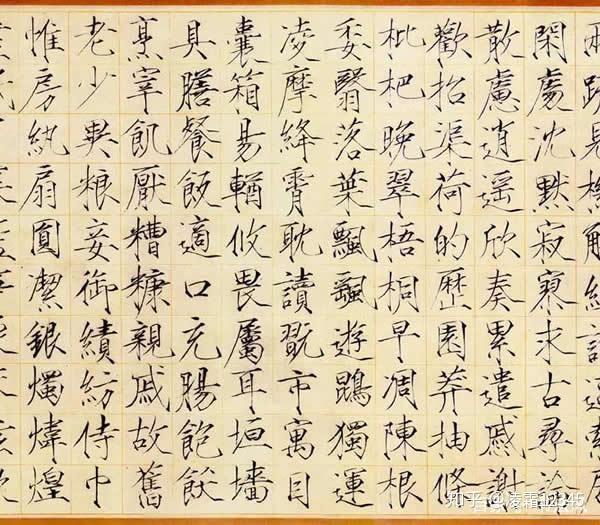 閑處沈默寂寥求古尋論
散慮逍遙欣奏累遣慼謝
歡招渠荷的歷園莽抽條
枇杷晚翠梧桐早凋陳根
委翳落葉飄颻遊鵾獨運
凌摩絳霄耽讀翫市寓目
囊箱易輶攸畏屬耳垣墻
具膳餐飯適口充腸飽飫
烹宰飢厭糟糠親戚故舊
老少異粮妾御績紡侍巾
帷房紈扇圓潔銀燭煒煌
知乎 @凌霜12345